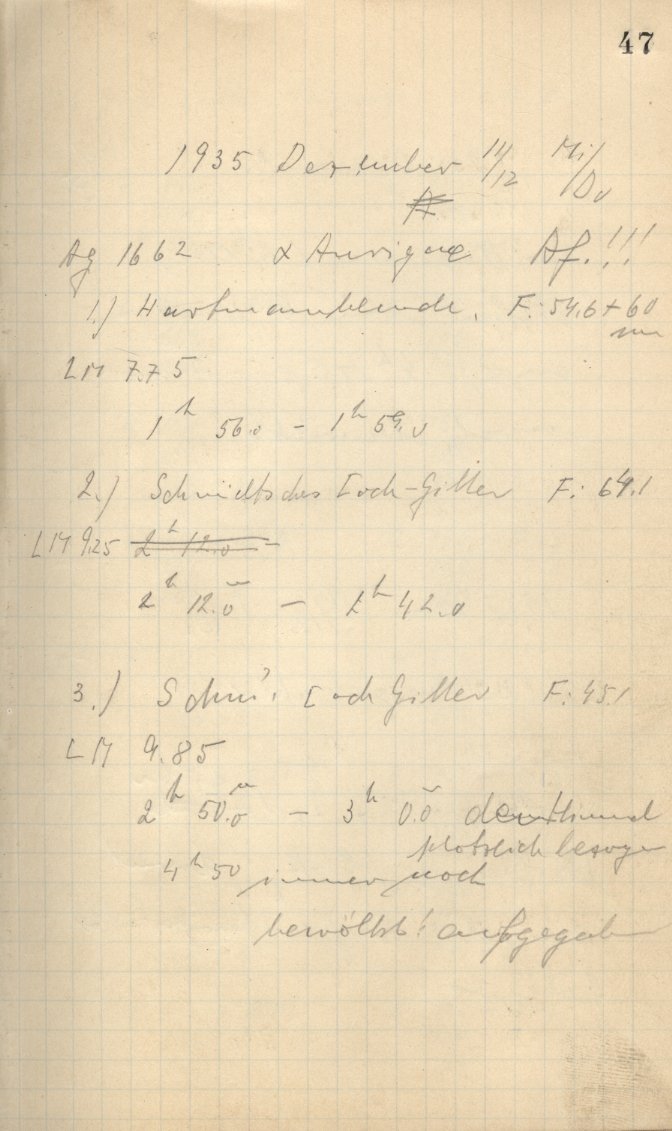 47
1935 Dezember 11/12 Mi/Do
Ag 1662 α Aurigae Af.!!!
1.) Hartmannblende. F: 54.6 + 60
LM 7.75
1h 56.0 – 1h 59.0
2.) Schmidtsches Loch-Gitter F: 64.1
LM 9.25 2h 12.0 –
2h 12.0 – 2h 42.0
3.) Schmi. Loch Gitter F: 45.1
LM 9.85
2h 50.0 – 3h 0.0 dann Himmel
plötzlich bezogen
4h 50 immer noch
bewölkt! aufgegeben